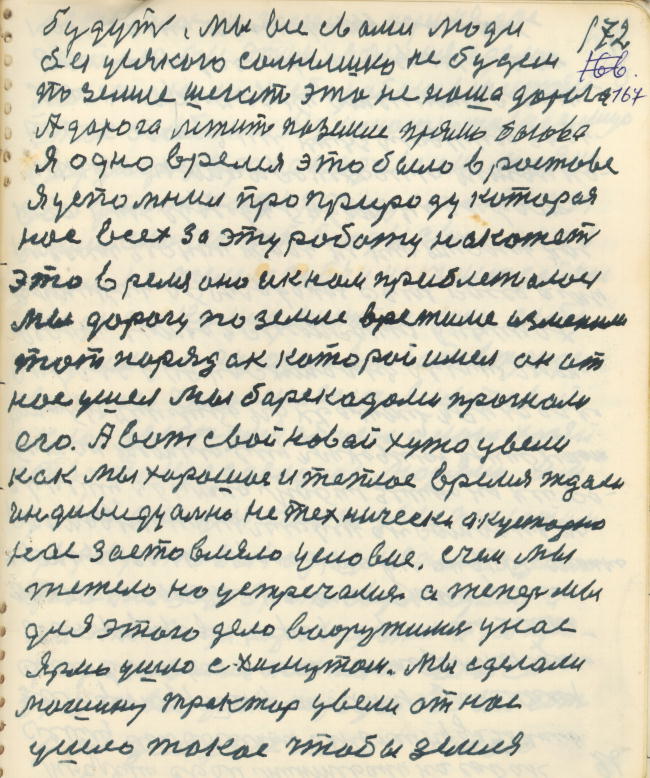 будут, мы все свами люди 172
без уяякого солнышко не будем 166.
по земле шегать это не наша дорога 167
А дорога лежит поземле прямо богова
Я одно время это было в ростове
я успомнил про природу которая
нас всех за эту работу накажет
это время оно и кнам приближалось
мы дорогу по земле врежиме изменили
тот парядак которой имел он от
нас ушел мы барекадами прогнали
его. А вот свой новай хуто увели
как мы хорошое и теплое время ждали
индивидуално не технически а кустарно
нас заставляло условие. счем мы
тежело но устречались а теперь мы
для этого дело вооружились унас
ярмо ушло с хамутом. мы сделали
машину трактор увели от нас
ушло такое чтобы земля